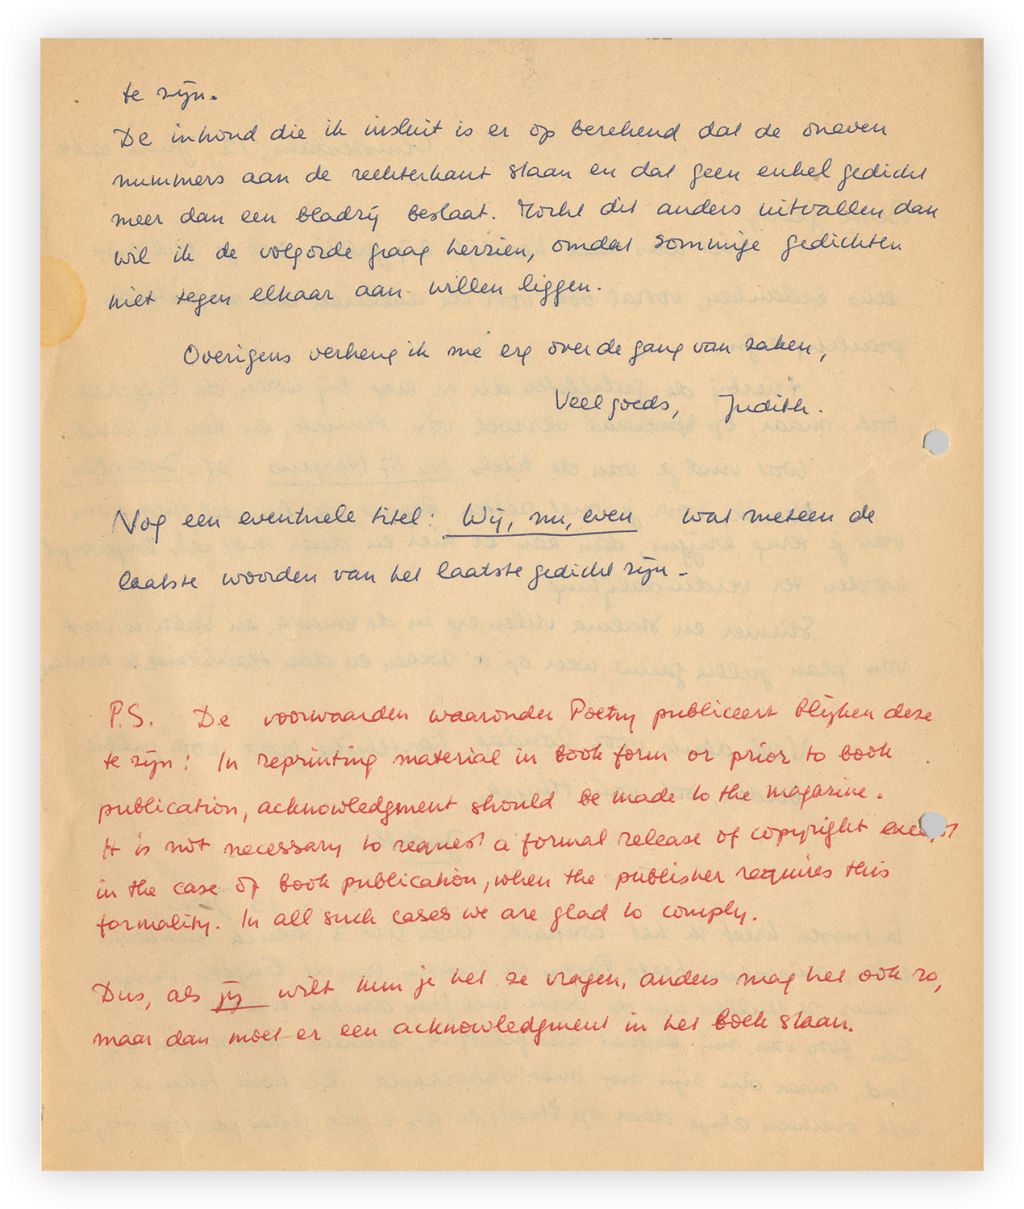 te zijn.
De inhoud die ik insluit is er op berekend dat de oneven
nummers aan de rechterkant staan en dat geen enkel gedicht
meer dan een bladzij beslaat. Mocht dit anders uitvallen dan
wil ik de volgorde graag herzien, omdat sommige gedichten
niet tegen elkaar aan willen liggen.
Overigens verheug ik me erg over de gang van zaken,
Veel goeds, Judith.
Nog een eventuele titel: Wij, nu, even wat meteen de
laatste woorden van het laatste gedicht zijn -
P.S. De voorwaarden waaronder Poetry publiceert blijken deze
te zijn: In reprinting material in book form or prior to book
publication, acknowledgment should be made to the magazine.
It is not necessary to request a formal release of copyright except
in the case of book publication, when the publisher requires this
formality. In all such cases we are glad to comply.
Dus, als jij wilt kun je het ze vragen, anders mag het ook zo,
maar dan moet er een acknowledgment in het boek staan.